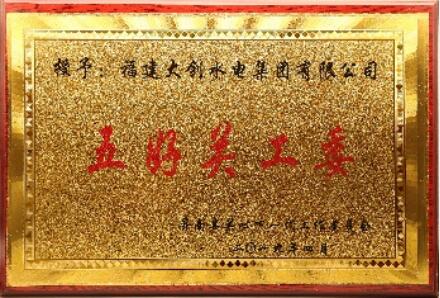 授予：福建大创水电集团有限公司
五好关工委
屏南县关心下一代工作委员会
二〇一九年四月